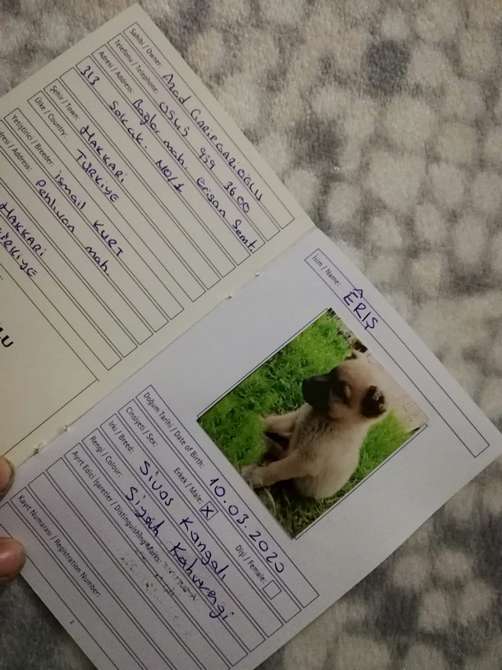 Sahibi / Owner: Azad GARIPGARİOĞLU
Telefonu / Telephone: 0545 959 3600
Adresi / Address: Bağlar mah. Erişan Semti
313 Sokak. NO/1
Şehir / Town: HAKKARİ
Ülke / Country: TÜRKİYE
Yetiştirici / Breeder: İsmail KURT
Adresi / Address: Pehlivan mah.
HAKKARİ
TÜRKİYE
İsim / Name: ÊRIŞ
Doğum Tarihi / Date of Birth: 10.03.2020
Cinsiyeti / Sex: Erkek / Male: X Dişi / Female:
Irkı / Breed: Sivas Kangalı
Rengi / Colour: Siyah Kahverengi
Ayırt Edici İşaretler / Distinguishing Marks:
Kayıt Numarası / Registration Number: